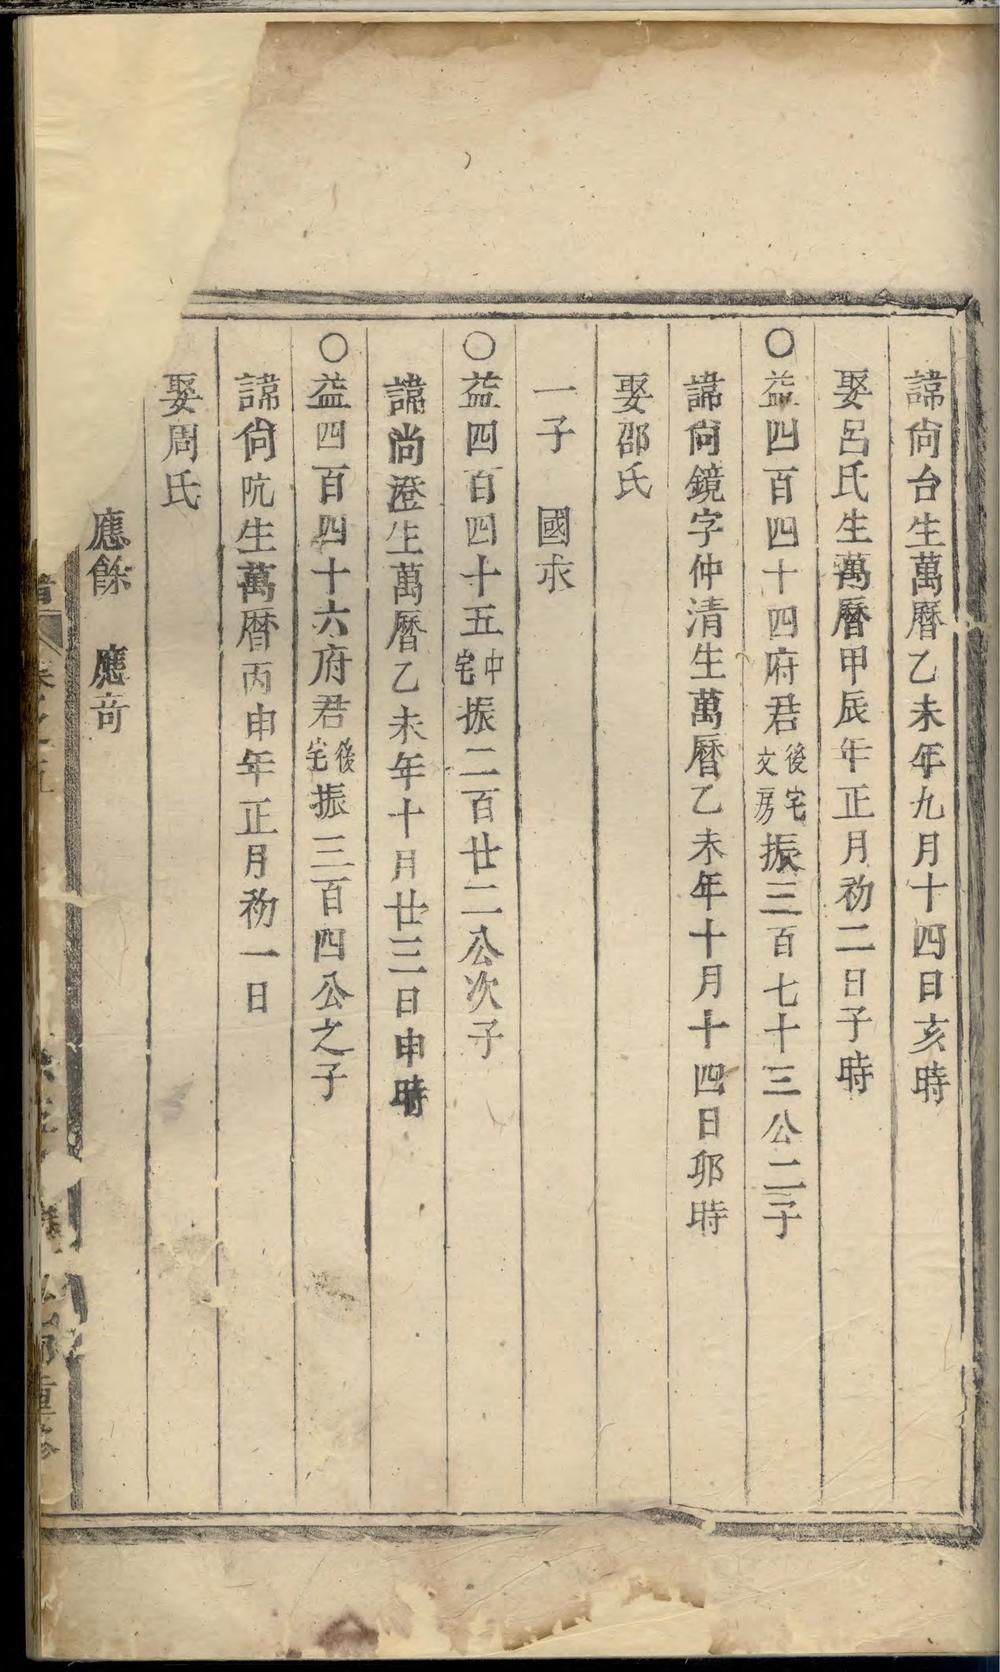 諱尙台生萬曆乙未年九月十四日亥時
娶呂氏生萬曆甲辰年正月初二日子時
○益四百四十四府君後宅文房振三百七十三公二子
諱尙鏡字仲清生萬曆乙未年十月十四日卯時
娶邵氏
一子　國求
○益四百四十五中宅振二百廿二公次子
諱尚澄生萬曆乙未年十月廿三日申時
○益四百四十六府君後宅振三百四公之子
諱尙阬生萬曆丙申年正月初一日
娶周氏
應餘　應奇
重修